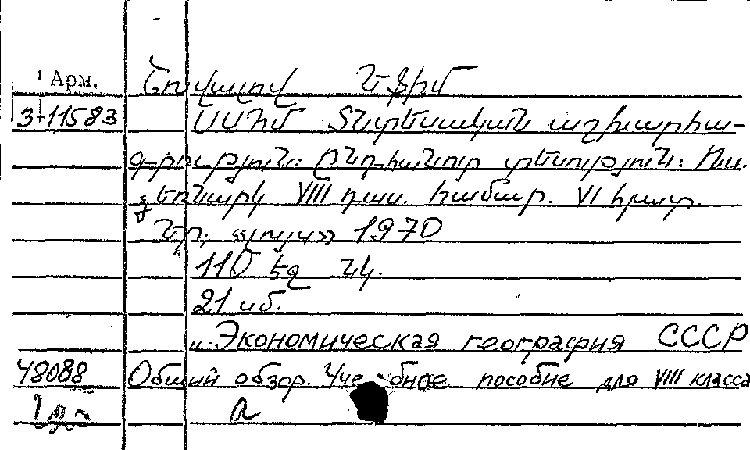 Арм.
3-11583 ՍՍՀՄ Տնտեսական աշխարհա-
գրություն։ Ընդհանուր տեսություն։ Ուս.
ձեռնարկ VIII դաս. համար. VI հրատ.
Եր., «Լույս» 1970
110 էջ նկ.
21 սմ.
Экономическая география СССР
48088 Общий обзор. Учебное пособие для VIII класса
а